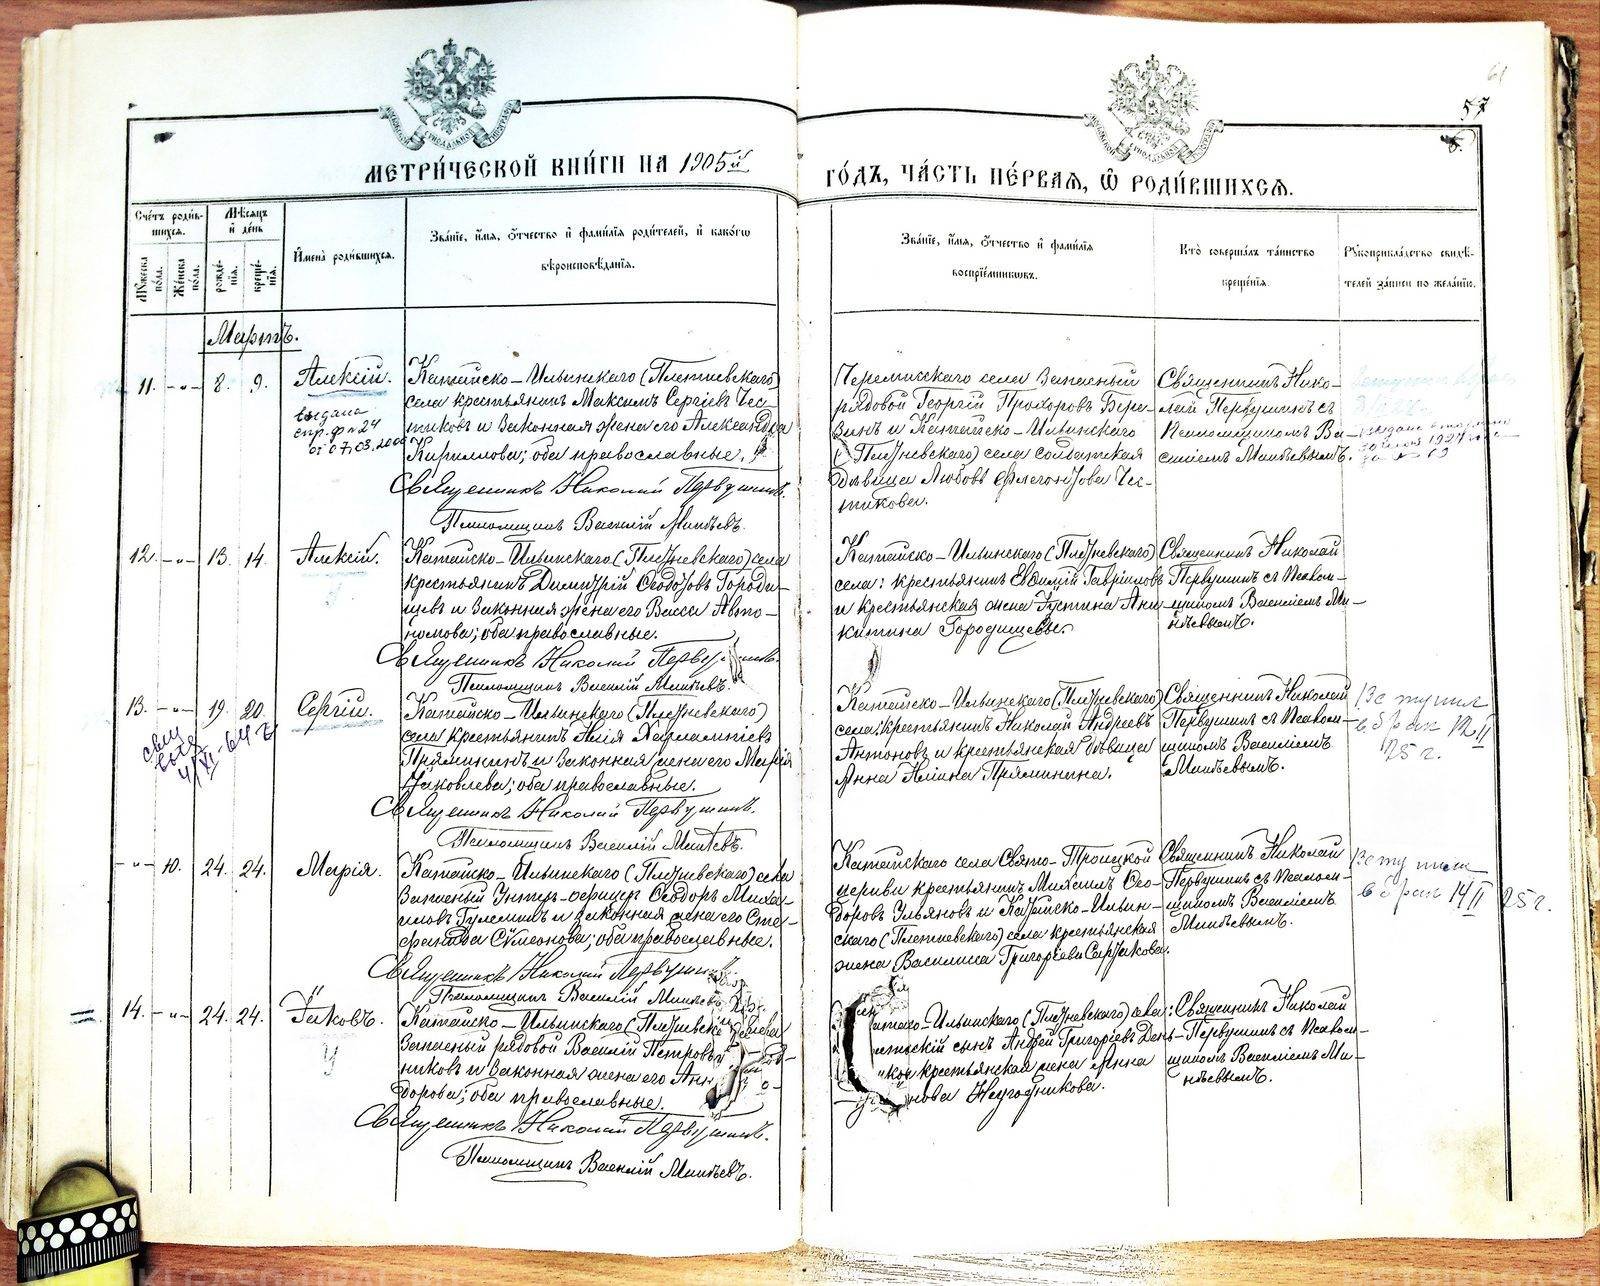 61
57
МЕТРИ́ЧЕСКОЙ КНИ́ГИ НА 1905й
ГО́ДЪ, ЧА́СТЬ ПЕ́РВАЯ, Ѽ РОДИ́ВШИХСЯ.
Сче́тъ роди́в-
шихся.
Мѣ́сяцъ
и де́нь
Мꙋ́жеска
по́ла.
Же́нска
по́ла.
рожде́-
нія.
креще́-
нія.
Имена̀ роди́вшихся.
Зва́ніе, и́мя, ѻ҆́тчество и фами́лія роди́телей, и како́гѡ
вѣроисповѣ́данія.
Зва́ніе, и́мя, ѻ҆́тчество и фами́лія
воспріе́мниковъ.
Кто̀ соверша́лъ та́инство
креще́нія.
Рꙋкоприкла́дство свидѣ́-
телей за́писи по жела́нію.
Мартъ.
11. -"- 8. 9. Алексій.
выдана
спр. ф № 24
от 07.03.2000
Катайско-Ильинскаго (Плетневскаго)
села крестьянинъ Максимъ Сергіевъ Чес-
тиковъ и законная жена его Александра
Кириллова; оба православные.
Священникъ Николай Первушинъ.
Псаломщикъ Василій Минѣевъ.
села Запасный
рядовой Георгій Прохоровъ Бере-
зинъ и Катайско-Ильинскаго
(Плетневскаго) села солдатская
дѣвица Любовь Флегонтова Чес-
тикова.
Священникъ Нико-
лай Первушинъ съ
Псаломщикомъ Ва-
силіемъ Минѣевымъ.
12. -"- 13. 14. Алексій.
Катайско-Ильинскаго (Плетневскаго) села
крестьянинъ Димитрій Ѳеодотовъ Городи-
щевъ и законная жена его Васса Авто-
номова; оба православные.
Священникъ Николай Первушинъ.
Псаломщикъ Василій Минѣевъ.
Катайско-Ильинскаго (Плетневскаго)
села: крестьянинъ Евдокій Гавріиловъ
и крестьянская жена Іустина Ани-
китина Городищевы.
Священникъ Николай
Первушинъ съ Псалом-
щикомъ Василіемъ Ми-
нѣевымъ.
13. -"- 19. 20. Сергій.
4/XI-64 г
Катайско-Ильинскаго (Плетневскаго)
села крестьянинъ Илія Харлампіевъ
Прямининъ и законная жена его Марія
Іаковлева; оба православные.
Священникъ Николай Первушинъ.
Псаломщикъ Василій Минѣевъ.
Катайско-Ильинскаго (Плетневскаго)
села: крестьянинъ Николай Андреевъ
Антоновъ и крестьянская дѣвица
Анна Иліина Пряминина.
Священникъ Николай
Первушинъ съ Псалом-
щикомъ Василіемъ
Минѣевымъ.
Вступил
в брак 12 II
25 г.
-"- 10. 24. 24. Марія.
Катайско-Ильинскаго (Плетневскаго) села
Запасный Унтеръ-офицеръ Ѳеодоръ Миха-
иловъ и законная жена его Сте-
фанида Сѵмеонова; оба православные.
Священникъ Николай Первушинъ.
Псаломщикъ Василій Минѣевъ.
Катайскаго села Свято-Троицкой
церкви крестьянинъ Ѳео-
доровъ Ульяновъ и Катайско-Ильин-
скаго (Плетневскаго) села крестьянская
жена Василисса Григоріева
Священникъ Николай
Первушинъ съ Псалом-
щикомъ Василіемъ
Минѣевымъ.
Вступила
в брак 14 II 25 г.
14. -"- 24. 24. Іаковъ.
Катайско-Ильинскаго
Запасный рядовой Василій Петровъ
никовъ и законная жена его Анн
дорова; оба православные.
Священникъ Николай Первушинъ.
Псаломщикъ Василій Минѣевъ.
Ильинскаго (Плетневскаго) села:
сынъ Андрей Григоріевъ
крестьянская жена Анна
нова
Священникъ Николай
Первушинъ съ Псалом-
щикомъ Василіемъ Ми-
нѣевымъ.